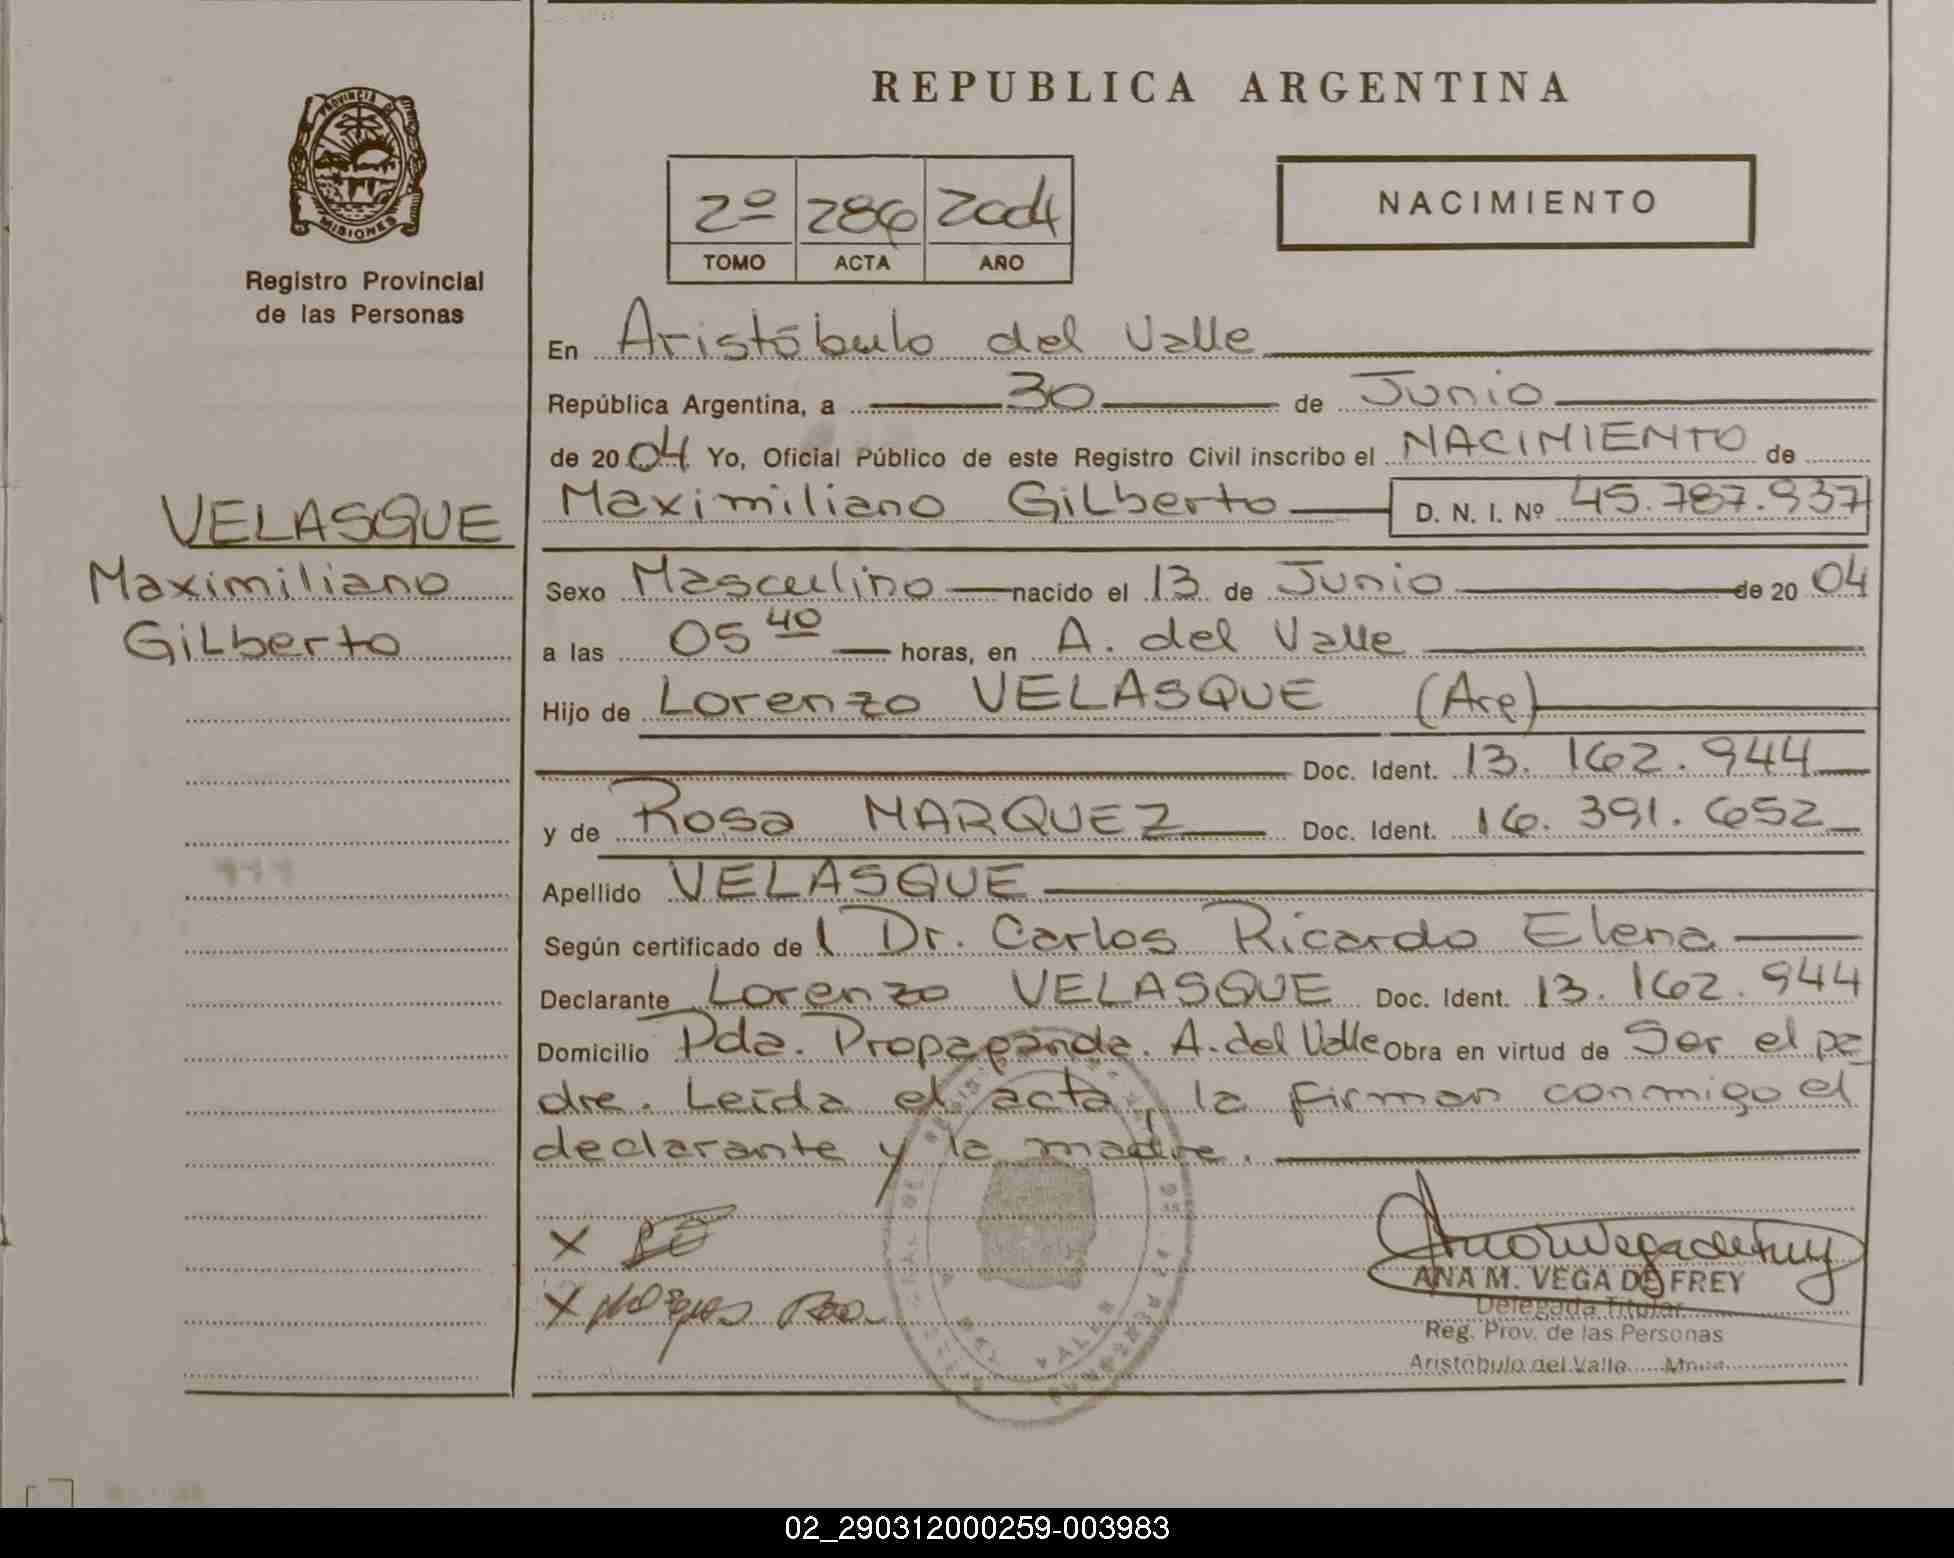 PROVINCIA DE
MISIONES
Registro Provincial
de las Personas
VELASQUE
Maximiliano
Gilberto
REPUBLICA ARGENTINA
2º 286 2004
TOMO ACTA AÑO
NACIMIENTO
En Aristóbulo del Valle
República Argentina, a 30 de Junio
de 2004 Yo, Oficial Público de este Registro Civil inscribo el NACIMIENTO de
Maximiliano Gilberto D. N. I. Nº 45.787.937
Sexo Masculino nacido el 13 de Junio de 2004
a las 05 40 horas, en A. del Valle
Hijo de Lorenzo VELASQUE (Arg)
Doc. Ident. 13.162.944
y de Rosa MARQUEZ Doc. Ident. 16.391.652
Apellido VELASQUE
Según certificado de l Dr. Carlos Ricardo Elena
Declarante Lorenzo VELASQUE Doc. Ident. 13.162.944
Domicilio Pda. Propaganda. A. del Valle Obra en virtud de Ser el pa
dre. Leída el acta, la firman conmigo el
declarante y la madre.
X
X
ANA M. VEGA DE FREY
Delegada Titular
Reg. Prov. de las Personas
Aristóbulo del Valle Mnes
02_290312000259-003983